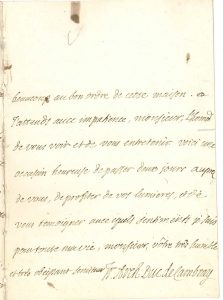 beaucoup au bon ordre de cette maison.
J'attends avec impatience, monsieur, l'honneur
de vous voir et de vous entretenir voici une
occasion heureuse de passer deux jours auprès
de vous, de profiter de vos lumieres, et de
vous temoigner avec quels sentiments je suis
pour toute ma vie, monsieur, vôtre très humble
et très obeissant serviteur Duc de Cambray